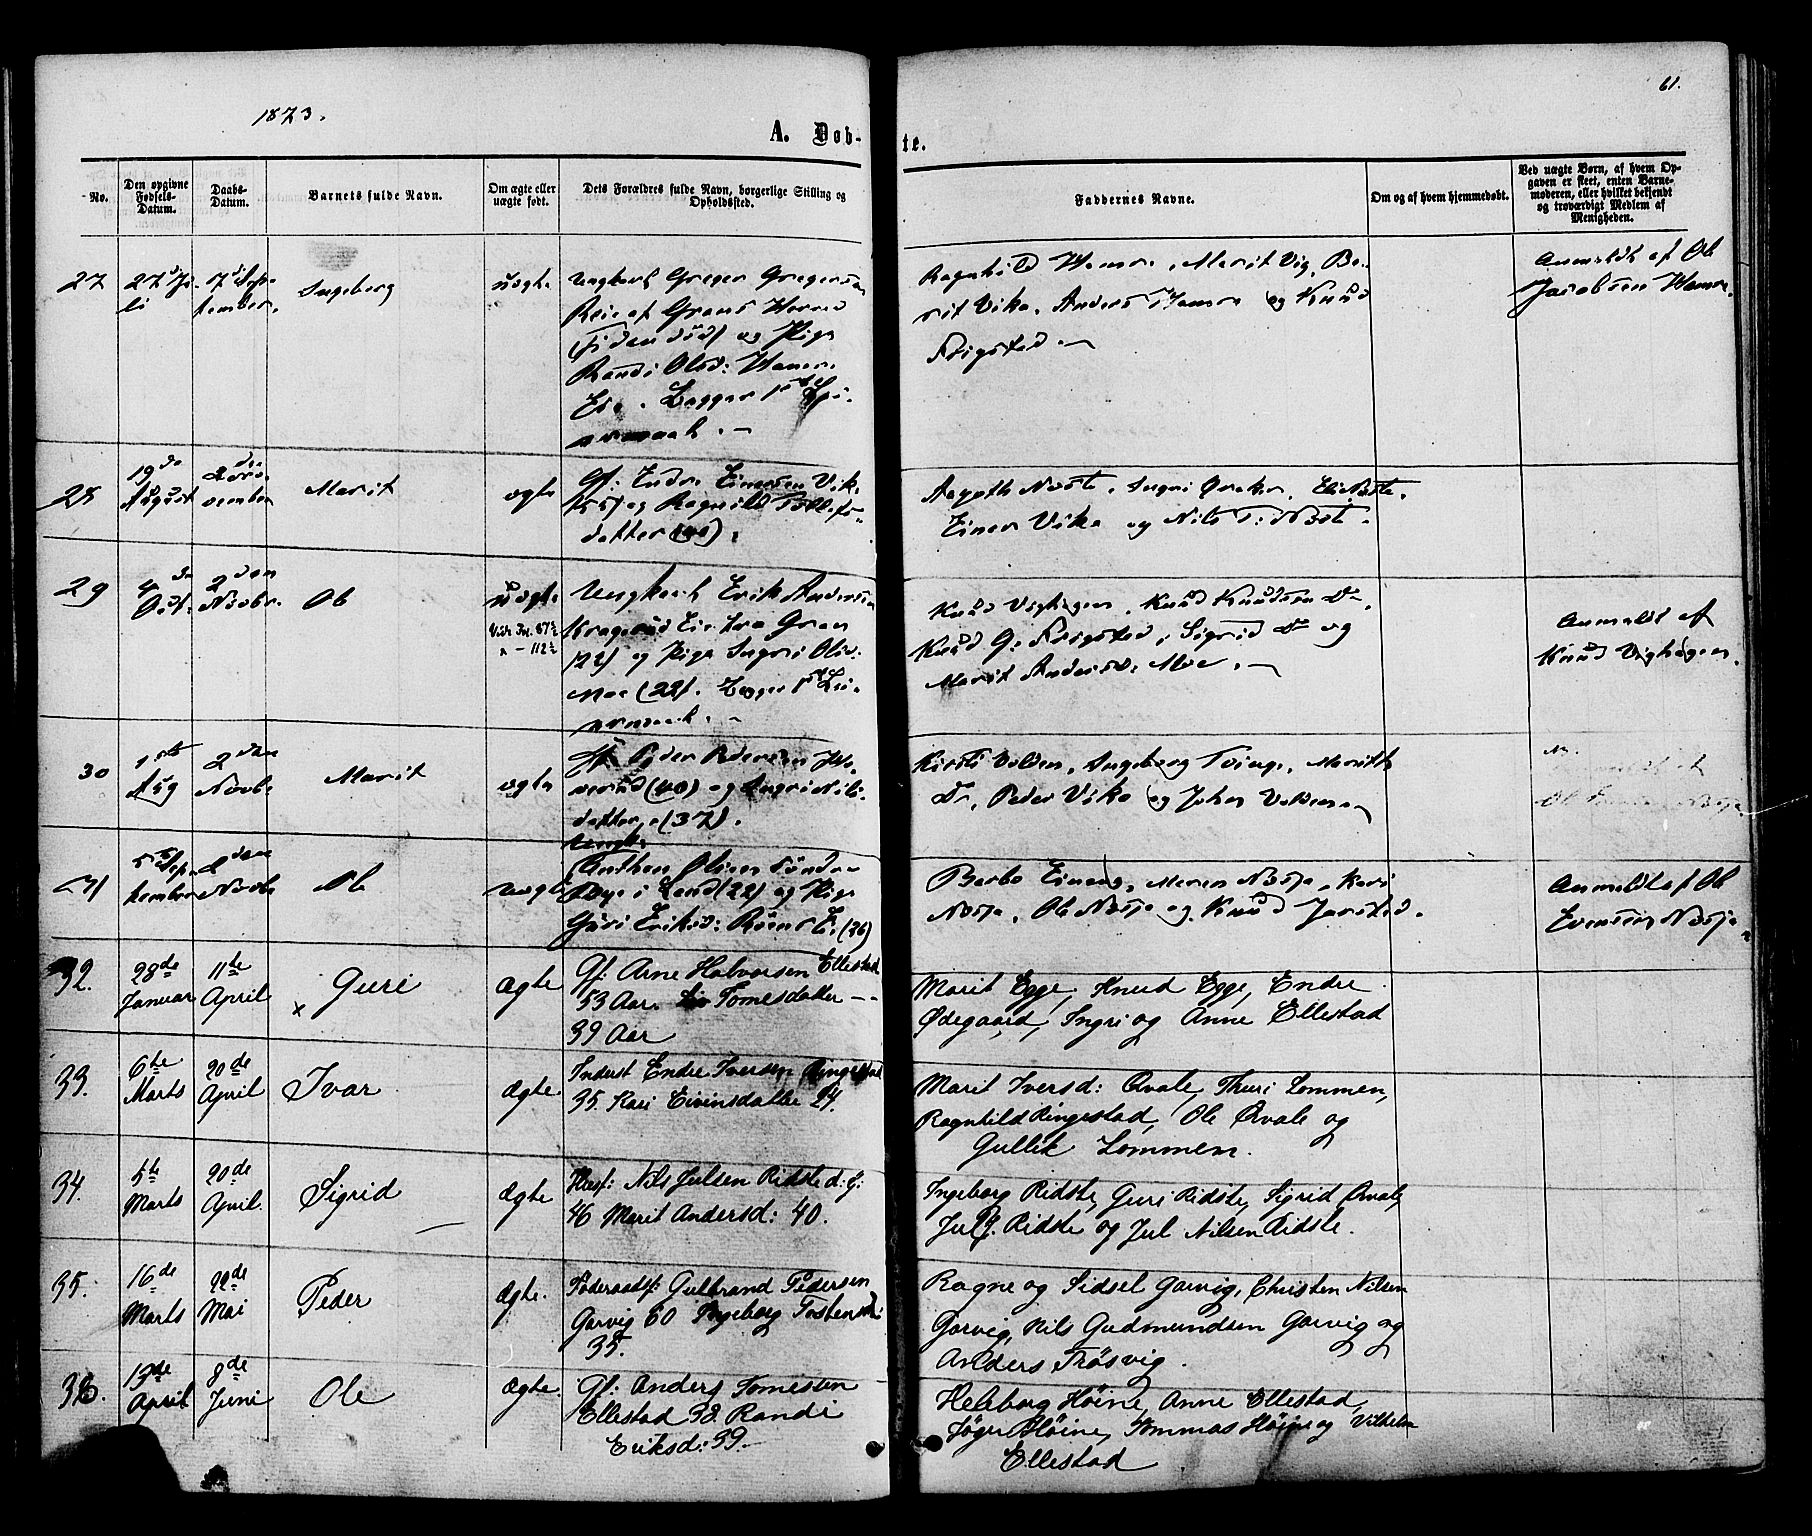 1873.
61.
A. Døb-
te.
No.
Den opgivne
Fødsels-
Datum.
Daabs-
Datum.
Barnets fulde Navn.
Om ægte eller
uægte født.
Dets Forældres fulde Navn, borgerlige Stilling og
Opholdssted.
Faddernes Navne.
Om og af hvem hjemmedøbt.
Ved uægte Børn, af hvem Op-
gaven er skeet, enten Barne-
moderen, eller hvilket bekjendt
og troværdigt Medlem af
Menigheden.
27
27 Ju-
li
7 Sep-
tember.
Ingeborg
uægte
Ungkarl Greger Gregersen
Reie af Grans
og Pige
Randi Olsd: Hamre
Eie. Begges 1ste Lei-
ermaal. —
Ragnhild Hamre, Marit Vig, Be-
rit Vika, Anders Hamre og Knud
Frigstad. —
Anmeldt af Ole
Jacobsen Hamre.
28
19de
August
2den No-
vember
Marit
ægte
Gf: Endre Einersen Vik-
og Ragnild Tollefs-
datter (40).
Aagoth Næste, Ingri Eli Næste,
Einer Vika og Nils T: Næste.
29
4de
Oct.
2den
Novbr.
Ole
uægte
Ungkarl Erik Andersen
Kragerud Eie fra Gran
(22) og Pige Ingri Olsd:
Moe (22). Begges 1ste Lei-
ermaal. —
Knud Vighagen, Knud Knudsen Do,
Knud G. Frigstad, Sigrid Do og
Marit Andersd: Moe. —
Anmeldt af
Knud Vighagen.
30
1ste
Aug
2den
Novbr
Marit
ægte
Peder Pedersen
(40) og Ingri Nils-
datter (37).
Kirsti Volden, Ingeborg Tvinge, Marith
Do, Peder Vika og Johan Volden
31
5te Sep-
tember
2den
Novbr
Ole
uægte
Ungk.
Anthon Olsen Søndre
i Land (22) og Pige
Guri Eriksd: (26)
Barbo Einang, Maren Næsja, Kari
Næsja, Ole Næsja og Knud Jarstad.
Anmeldt af Ole
Evensen Næsja
32.
28de
Januar
11te
April
× Guri
Ægte
Gf: Arne Halvorsen Ellestad
53 Aar. Liv Tomesdatter —
39 Aar
Marit Egge, Knud Egge, Endre
Ødegaard, Ingri og Anne Ellestad
33.
6te
Marts
20de
April
Ivar
Ægte
Inderst Endre Iversen Ringestad
35. Kari Eivinsdatter 24.
Marit Iversd: Qvale, Thuri Lommen,
Ragnhild Ringestad, Ole Qvale og
Gullik Lommen.
34.
5te
Marts
20de
April.
Sigrid
Ægte
Husf: Nils Julsen Ridste d: y:
46 Marit Andersd: 40.
Ingeborg Ridste, Guri Ridste, Sigrid Qvale,
Jul J. Ridste og Jul Nilsen Ridste.
35.
16de
Marts
22de
Mai
Peder
Ægte.
Føderaadsf: Gulbrand Pedersen
Garvig 60 Ingeborg Tostensd:
35.
Ragne og Sidsel Garvig, Christen Nilsen
Garvig, Nils Gudmundsen Garvig og
Anders Trøsvig.
36.
13de
April
8de
Juni
Ole
Ægte.
Gf: Anders Tomessen
Ellestad 38. Randi
Eriksd: 39.
Helleborg Høine, Anne Ellestad,
Høine, Tommas Høine og Vilhelm
Ellestad